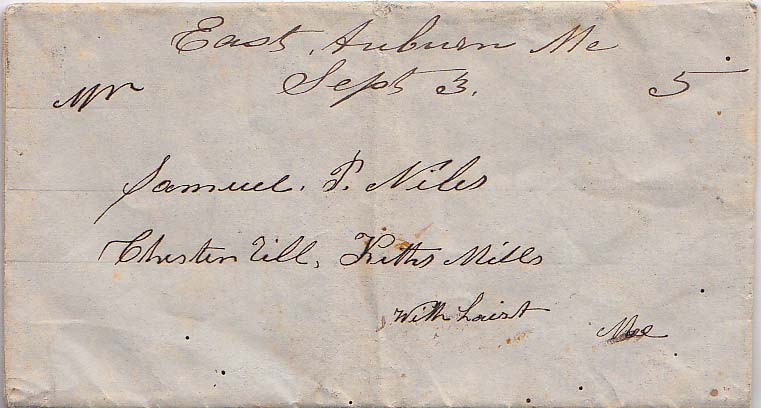 East Auburn Me
Sept 3. 5
Mr
Samuel. P. Niles
Chesterville, Kiths Mills
With haist
Me